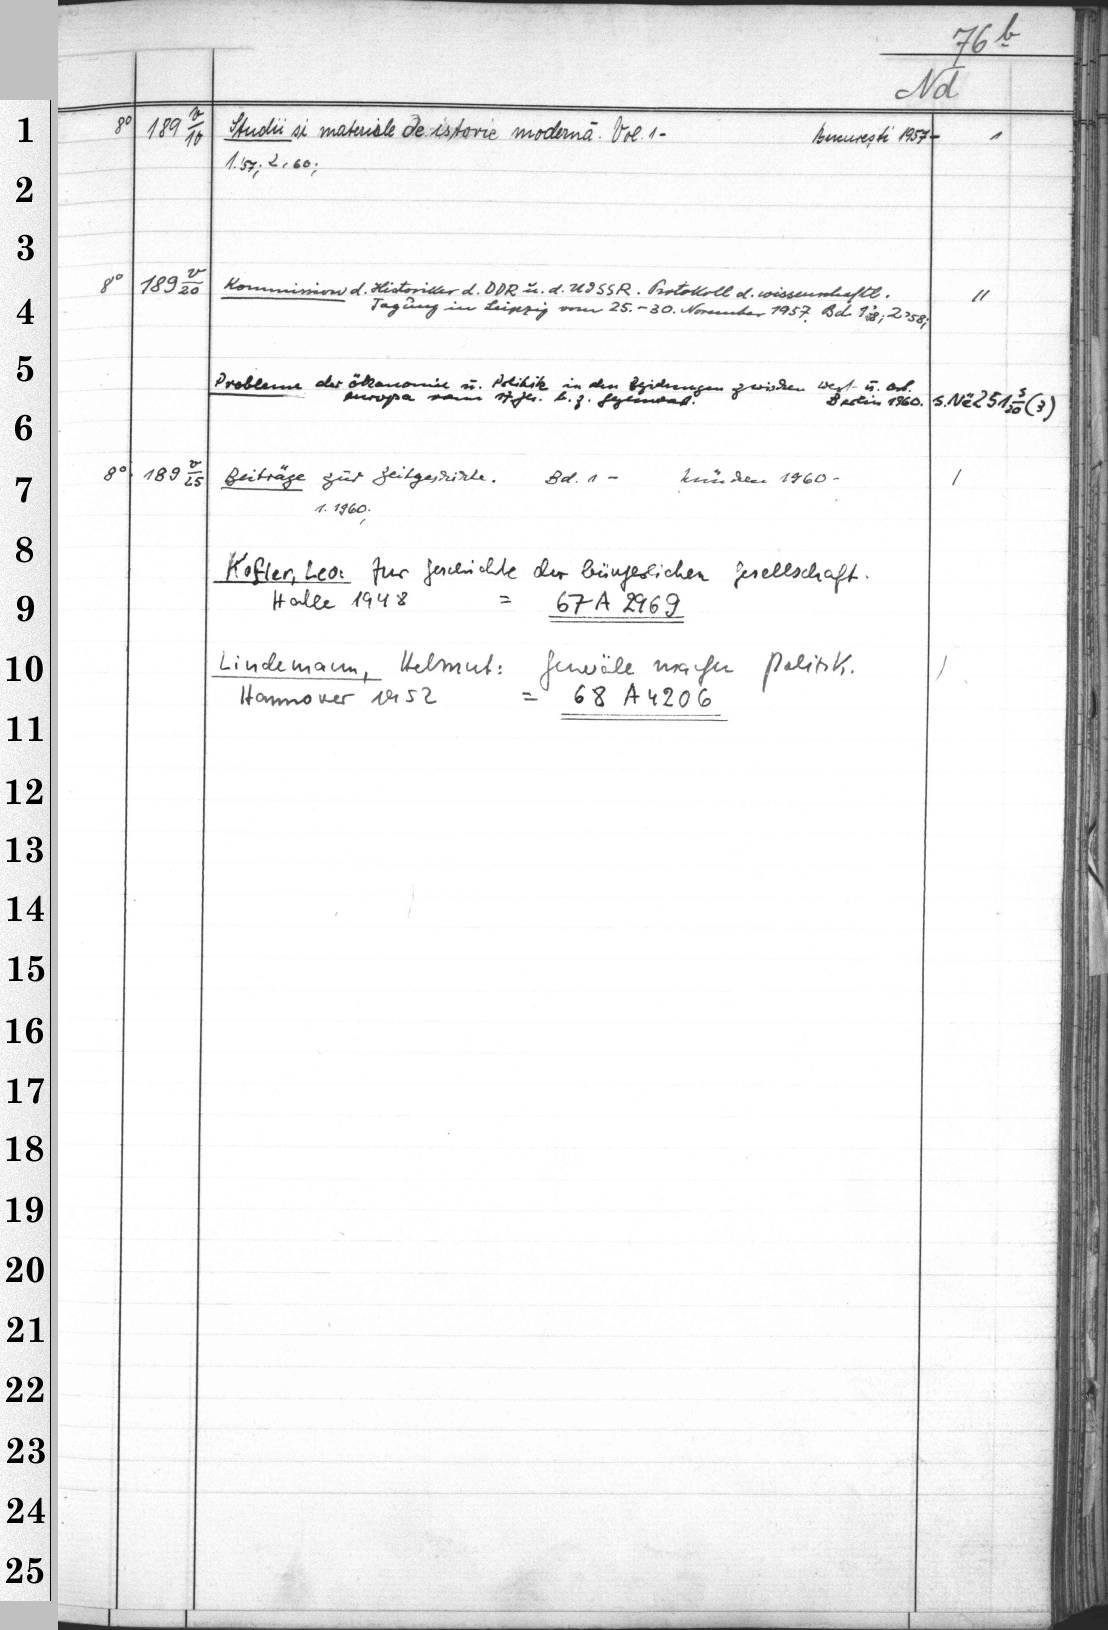 76 b
Nd
1 8° 189 v/10 Studii si materiale de istorie modernă. Vol. 1- București 1957- 1
1.'57; 2.'60;
2
3
8° 189 v/20 Kommission d. Historiker d. DDR u. d. UdSSR. Protokoll d. wissenschaftl. 11
4 Tagung in Leipzig vom 25.-30. November 1957. Bd. 1'58; 2'58;
5 Probleme der Ökonomie u. Politik in den Beziehungen zwischen West- u. Ost-
europa vom 17. Jh. b. z. Gegenwart. Berlin 1960. s. Nä 251 s/20 (3)
6
7 8° 189 v/25 Beiträge zur Zeitgeschichte. Bd. 1 - München 1960 - 1
1. 1960;
8 Kofler, Leo: Zur Geschichte der bürgerlichen Gesellschaft.
9 Halle 1948 = 67 A 2969
10 Lindemann, Helmut: Generäle machen Politik. 1
Hannover 1952 = 68 A 4206
11
12
13
14
15
16
17
18
19
20
21
22
23
24
25